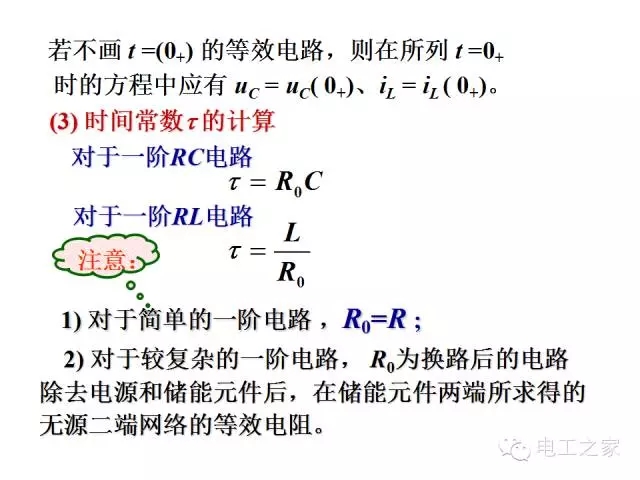 若不画 t =(0₊) 的等效电路，则在所列 t =0₊
时的方程中应有 u_C = u_C( 0₊)、i_L = i_L ( 0₊)。
(3) 时间常数τ 的计算
对于一阶RC电路
τ = R₀C
对于一阶RL电路
τ = L / R₀
注意：
1) 对于简单的一阶电路 ，R₀=R ;
2) 对于较复杂的一阶电路， R₀为换路后的电路
除去电源和储能元件后，在储能元件两端所求得的
无源二端网络的等效电阻。
电工之家